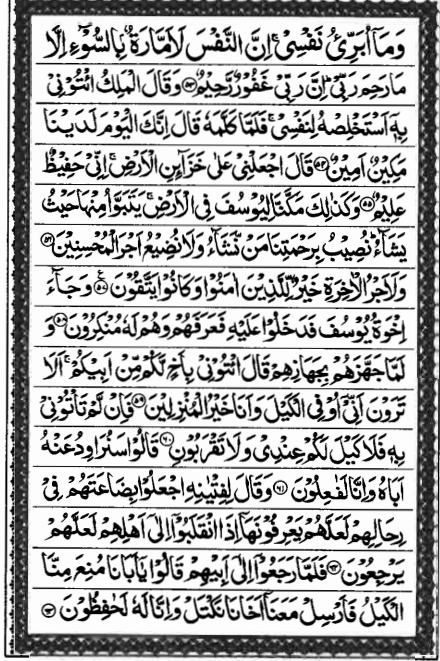 وَمَاۤ اُبَرِّئُ نَفْسِیْ ۚ اِنَّ النَّفْسَ لَاَمَّارَةٌۢ بِالسُّوْٓءِ اِلَّا
مَا رَحِمَ رَبِّیْ ؕ اِنَّ رَبِّیْ غَفُوْرٌ رَّحِیْمٌ ﴿۵۳﴾ وَقَالَ الْمَلِكُ ائْتُوْنِیْ
بِهٖۤ اَسْتَخْلِصْهُ لِنَفْسِیْ ۚ فَلَمَّا كَلَّمَهٗ قَالَ اِنَّكَ الْیَوْمَ لَدَیْنَا
مَكِیْنٌ اَمِیْنٌ ﴿۵۴﴾ قَالَ اجْعَلْنِیْ عَلٰی خَزَآىِٕنِ الْاَرْضِ ۚ اِنِّیْ حَفِیْظٌ
عَلِیْمٌ ﴿۵۵﴾ وَكَذٰلِكَ مَكَّنَّا لِیُوْسُفَ فِی الْاَرْضِ ۚ یَتَبَوَّاُ مِنْهَا حَیْثُ
یَشَآءُ ؕ نُصِیْبُ بِرَحْمَتِنَا مَنْ نَّشَآءُ وَلَا نُضِیْعُ اَجْرَ الْمُحْسِنِیْنَ ﴿۵۶﴾
وَلَاَجْرُ الْاٰخِرَةِ خَیْرٌ لِّلَّذِیْنَ اٰمَنُوْا وَكَانُوْا یَتَّقُوْنَ ﴿۵۷﴾ وَجَآءَ
اِخْوَةُ یُوْسُفَ فَدَخَلُوْا عَلَیْهِ فَعَرَفَهُمْ وَهُمْ لَهٗ مُنْكِرُوْنَ ﴿۵۸﴾ وَ
لَمَّا جَهَّزَهُمْ بِجَهَازِهِمْ قَالَ ائْتُوْنِیْ بِاَخٍ لَّكُمْ مِّنْ اَبِیْكُمْ ۚ اَلَا
تَرَوْنَ اَنِّیْۤ اُوْفِی الْكَیْلَ وَاَنَا خَیْرُ الْمُنْزِلِیْنَ ﴿۵۹﴾ فَاِنْ لَّمْ تَاْتُوْنِیْ
بِهٖ فَلَا كَیْلَ لَكُمْ عِنْدِیْ وَلَا تَقْرَبُوْنِ ﴿۶۰﴾ قَالُوْا سَنُرَاوِدُ عَنْهُ
اَبَاهُ وَاِنَّا لَفٰعِلُوْنَ ﴿۶۱﴾ وَقَالَ لِفِتْیٰنِهِ اجْعَلُوْا بِضَاعَتَهُمْ فِیْ
رِحَالِهِمْ لَعَلَّهُمْ یَعْرِفُوْنَهَاۤ اِذَا انْقَلَبُوْۤا اِلٰۤی اَهْلِهِمْ لَعَلَّهُمْ
یَرْجِعُوْنَ ﴿۶۲﴾ فَلَمَّا رَجَعُوْۤا اِلٰۤی اَبِیْهِمْ قَالُوْا یٰۤاَبَانَا مُنِعَ مِنَّا
الْكَیْلُ فَاَرْسِلْ مَعَنَاۤ اَخَانَا نَكْتَلْ وَاِنَّا لَهٗ لَحٰفِظُوْنَ ﴿۶۳﴾